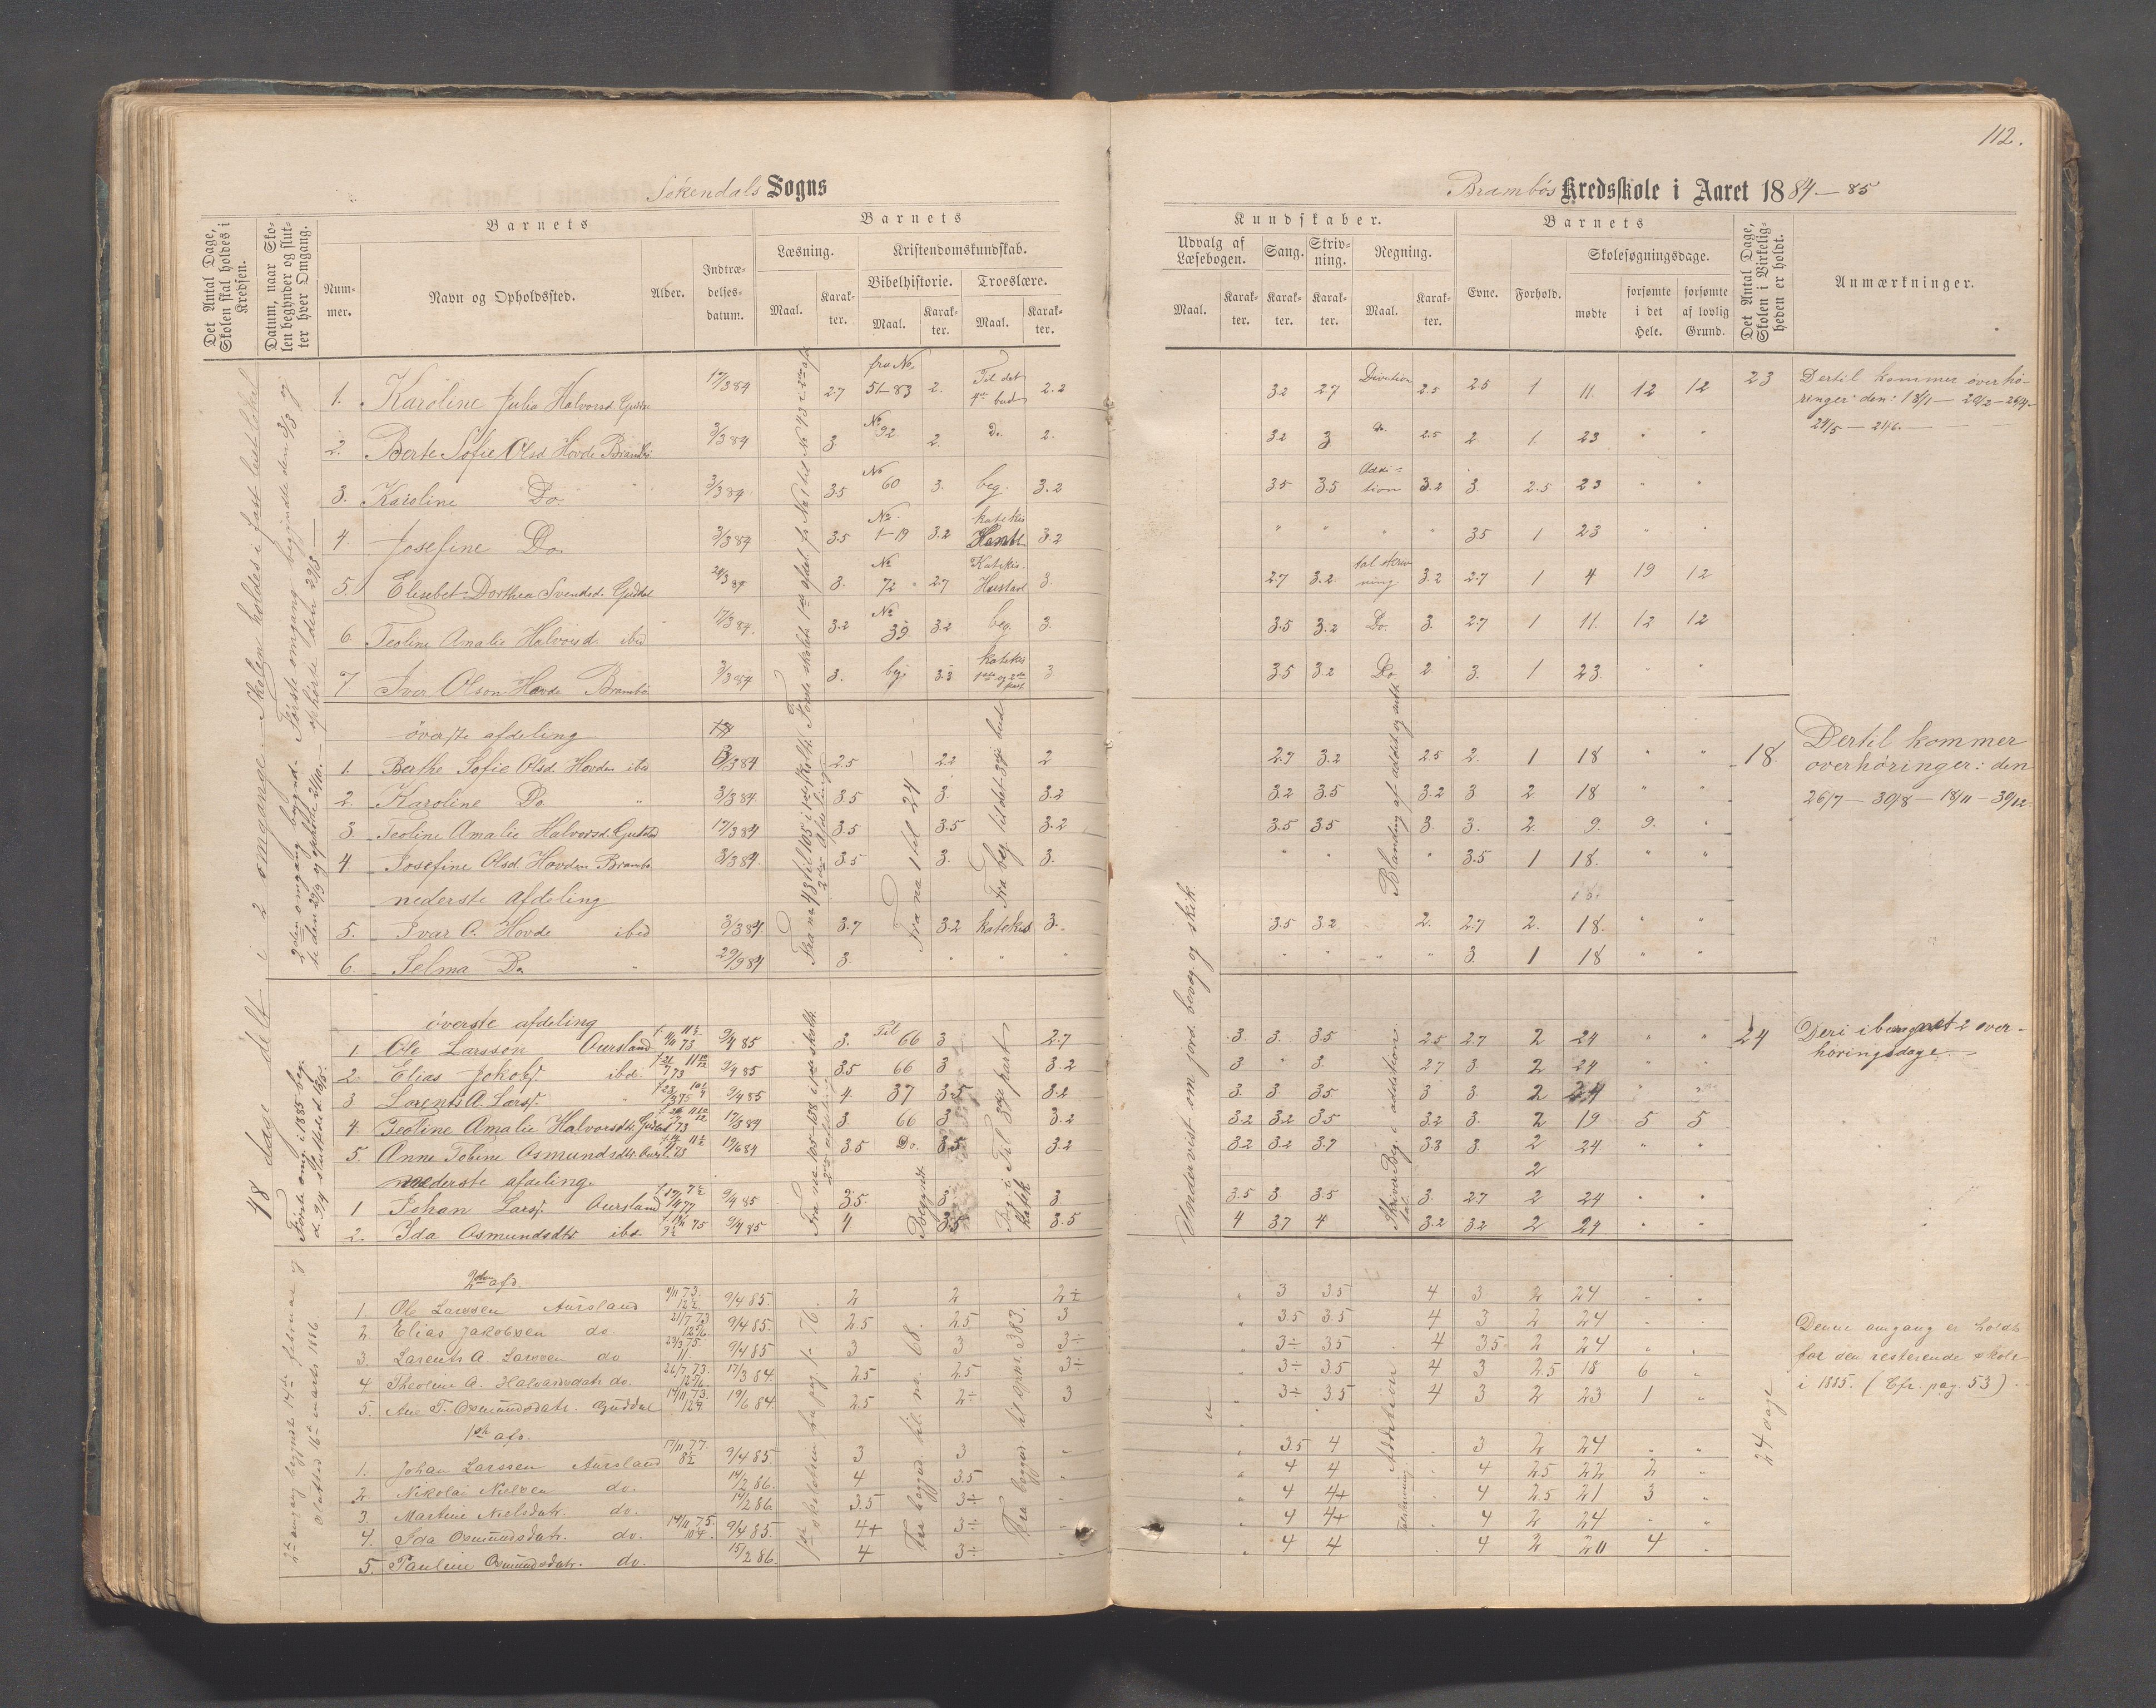 112.
Sokendals Sogns
Brambös Kredsskole i Aaret 1884-85
Det Antal Dage, Skolen skal holdes i Kredsen.
Datum, naar Skolen begynder og slutter hver Omgang.
Barnets
Nummer.
Navn og Opholdssted.
Alder.
Indtrædelsesdatum.
Barnets
Læsning.
Maal.
Karakter.
Kristendomskundskab.
Bibelhistorie.
Maal.
Karakter.
Troeslære.
Maal.
Karakter.
Kundskaber.
Udvalg af Læsebogen.
Maal.
Karakter.
Sang.
Karakter.
Skrivning.
Karakter.
Regning.
Maal.
Karakter.
Barnets
Evne.
Forhold.
Skolesøgningsdage.
mødte
forsømte i det Hele.
forsømte af lovlig Grund.
Det Antal Dage, Skolen i Virkeligheden er holdt.
Anmærkninger.
48 dage delt i 2 omgange. Skolen holdes i fast leiet lokal
Første omgang begyndte den 3/3 og ophørte den 29/3
2den omgang begyndte den 2/9 og ophørte 21/10.
1. Karoline Julia Halvorsd. 17/3 84 2.7 fra No. 51-83 2. Til det 4de bud 2.2 3.2 2.7 Division 2.5 2.5 1 11. 12 12 23
2. Berte Sofie Olsd Hovde Brambö 3/3 84 3. No 92. 2. Do. 2. 3.2 3 Do. 2.5 2. 1. 23 " "
3. Karoline Do " 3/3 84 3.5 No 60 3. beg. 3.2 3.5 3.5 Addition 3.2 3. 2.5 23 " "
4. Josefine Do 3/3 84 3.5 No. 1-19 3.2 katekis 3.2 " " " " 3.5 1 23 " "
5. Elisebet Dorthea Svendsd. Guddal 24/3 84 3. No 72 2.7 Katekis. 3. 2.7 3.2 tal skrivning 3.2 2.7 1 4 19 12
6. Teoline Amalie Halvorsd. ibid 17/3 84. 3.2 No 39 3.2 beg. 3. 3.5 3.2 Do. 3. 2.7 1 11. 12 12
7 Iver Olson Hovde Brambö 3/3 84 3. beg. 3.3 katekis 1ste og 2den part 3 3.5 3.2 Do. 2. 3. 1 23.
Dertil kommer overhøringer: den: 18/1 - 20/2 - 26/4 - 29/5 - 21/6.
øverste afdeling
1. Berthe Sofie Olsd. Hovden ibid 3/3 84 2.5 2.2 2 2.7 3.2 2.5 2. 1 18 " " 18.
2. Karoline Do. " 3/3 84 3.5 3. 3.2 3.2 3.5 3.2 3. 2 18 " "
3. Teoline Amalie Halvorsd. Guddal 17/3 84 3.5 3.5 3.2 3.5 3.5 3. 3. 2. 9. 9. "
4 Josefine Olsd Hovden Brambö 3/3 84. 3.5 3. 3. " " " 3.5 1 18. " "
nederste afdeling
5. Ivar O. Hovde ibid 3/3 84. 3.7 3.2 katekis 3. 3.5 3.2 2. 2.7 2. 18. " "
6. Selma Do " 29/9 84 3. " " " " " " " 3. 1 18 " "
Fra no 43 til 105 i
2den Afdeling
Fra no 1 til 24
Fra beg. til det 3die bud
Blanding af addit. og subt.
Dertil kommer overhøringer: den 26/7 - 30/8 - 18/11 - 30/12.
Første omg. i 1885 beg. d. 9/4 sluttede d. 6/5.
øverste afdeling
1 Ole Larssen Aursland 9/4 85 3. Til 66 3 2.7 3. 3. 3.5 2.5 2.7 2 24 " " 24
2. Elias Jakobs. ibd. 9/4 85 3.5 66 3 3.2 3 " 3. 2.7 3. 2 24 " "
3 Lorents A. Lars. " 9/4 85 4. 37 3.5 3.2 3. 3. 3.5 3. 3. 2 24 " "
4. Teoline Amalie Halvorsdtr. Guddal 17/3 84 3. 66 3 3.2 3.2 3.2 3.5 3.2 3. 2 19 5 5
5. Anne Tobine Osmundsdtr. 19/6 84 3.5 Do. 3.5 3.2 3.2 3.2 3.7 3.3 3. 2 24 " "
nederste afdeling.
1 Johan Lars. Aursland 9/4 85 3.5 3. 3. 3.5 3. 3.5 3. 2.7 2 24 " "
2. Ida Osmundsdtr ibd 9/4 85 4 3.5 3.5 4 3.7 4 3.2 3.2 2 24 " "
Begyndt
Undervist om jord. bevæg. og skik.
Deri iberegnet 2 overhøringsdage.
2den omgang begyndt 14de februar og sluttet 16de marts 1886
2den afd.
1. Ole Larssen Aursland 9/4 85. 2 2 2÷ " 3 3.5 4 3 2 24 " "
2 Elias Jakobsen do. 21/7 73 9/4 85. 2.5 2.5 3 " 3.5 3.5 4 3 2 24 " "
3. Larents A Larssen do 23/3 75. 11 9/4 85 3 3 3÷ " 3÷ 3.5 4 3.5 2 24 " "
4 Theoline A. Halvarsdatr do. 26/7 73. 17/3 84. 2.5 2.5 3÷ 3÷ 3.5 4 3 2.5 18 6 "
5. Ane T. Osmundsdatr. Guddal 14/11 73. 19/6 84. 2.5 2÷ 3 " 3÷ 3.5 4 3 2 23 1 "
1ste afd.
1. Johan Larssen Aursland 17/11 77. 8½ 9/4 85. 3 3 " " 3.5 4 3 2 24 " "
2. Nikolai Nielsen do. 14/2 86. 4 3.5 " " 4 4 4 2.5 22 2 "
3. Martine Nielsdatr. do. 14/2 86 3.5 3÷ " " 4 4+ 4 2.5 21 3 "
4. Ida Osmundsdatr. do. 14/11 75. 9/4 85. 4+ 3÷ " " 4 4+ 4 2 24 " "
5. Pauline Osmundsdatr. do. 15/2 86. 4 3÷ " " 4 4 4 2 20 4 "
Fra begynd. til no. 68.
Fra begynd. til spm. 383.
Addition
24 dage
Denne omgang er holdt for den resterende skole i 1885. (Cfr. pag 53).